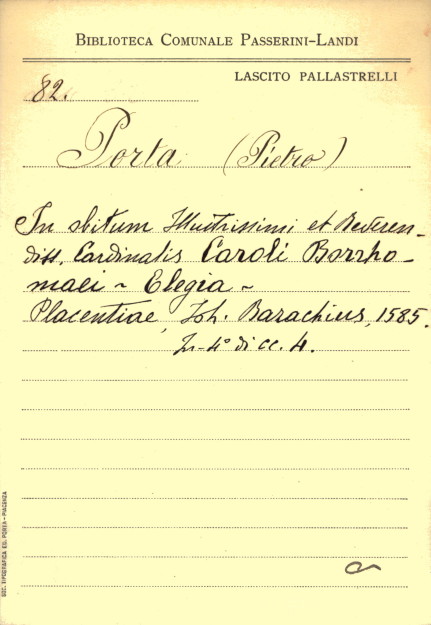 BIBLIOTECA COMUNALE PASSERINI-LANDI
LASCITO PALLASTRELLI
82.
Porta (Pietro)
In obitum Illustrissimi et Reveren-
diss. Cardinalis Caroli Borrho-
maei ~ Elegia ~
Placentiae, Joh. Barachius, 1585.
In-4° di cc. 4.
SOC. TIPOGRAFICA ED. PORTA - PIACENZA